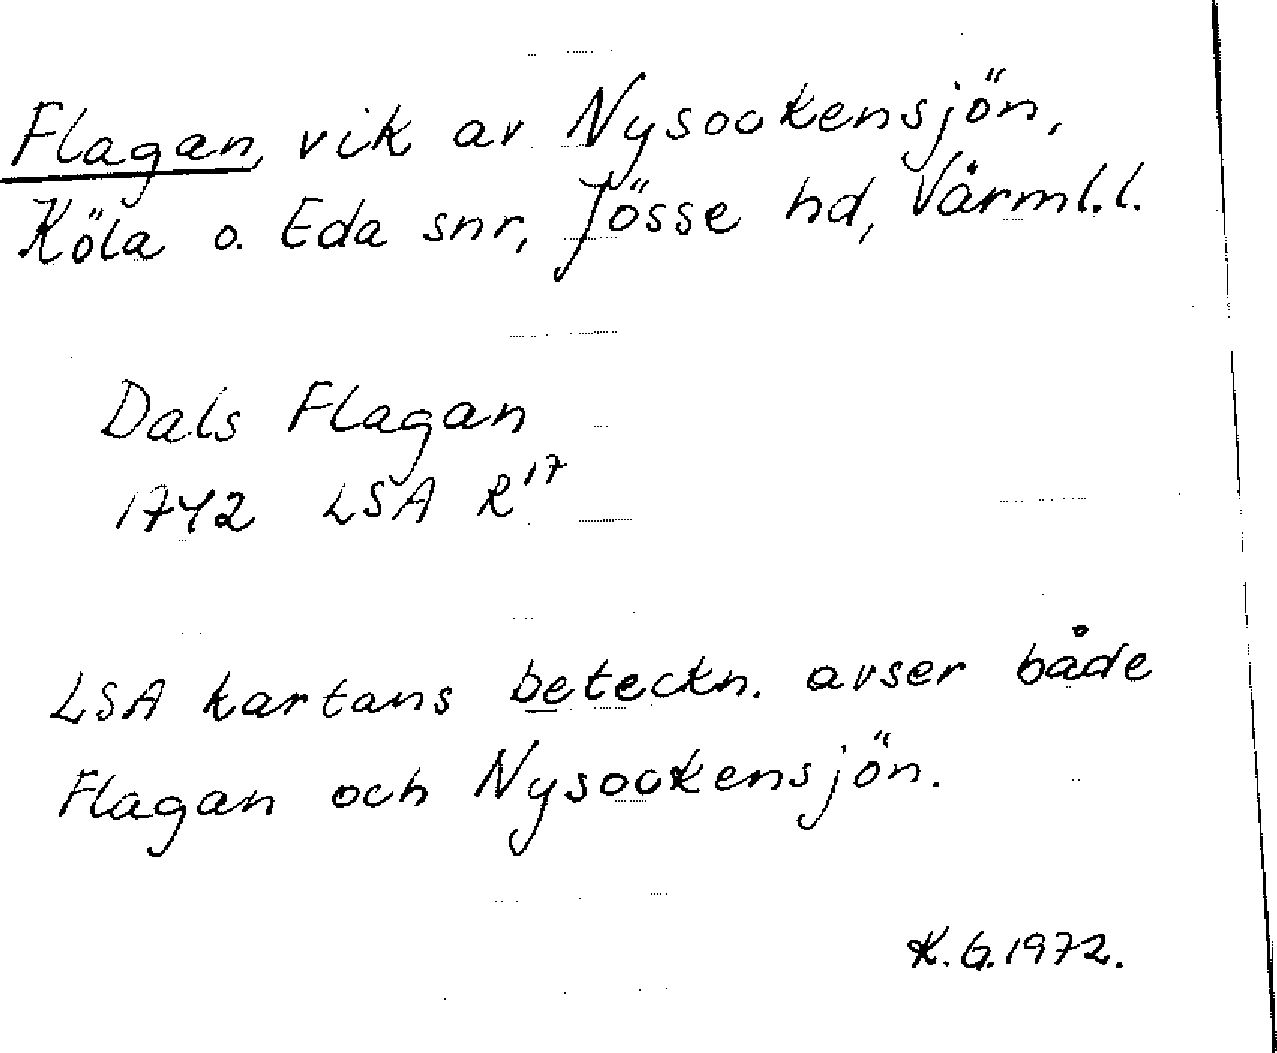 Flagan, vik av Nysockensjön,
Köla o. Eda snr, Jösse hd, Värml.l.
Dals Flagan
1742 LSA R17
LSA kartans beteckn. avser både
Flagan och Nysockensjön.
K.G.1972.